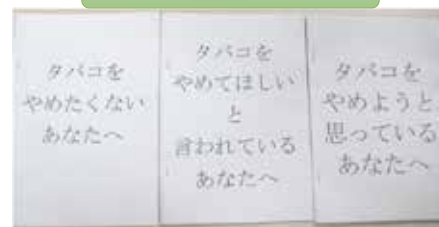 タバコを
やめたくない
あなたへ
タバコを
やめてほしい
と
言われている
あなたへ
タバコを
やめようと
思っている
あなたへ